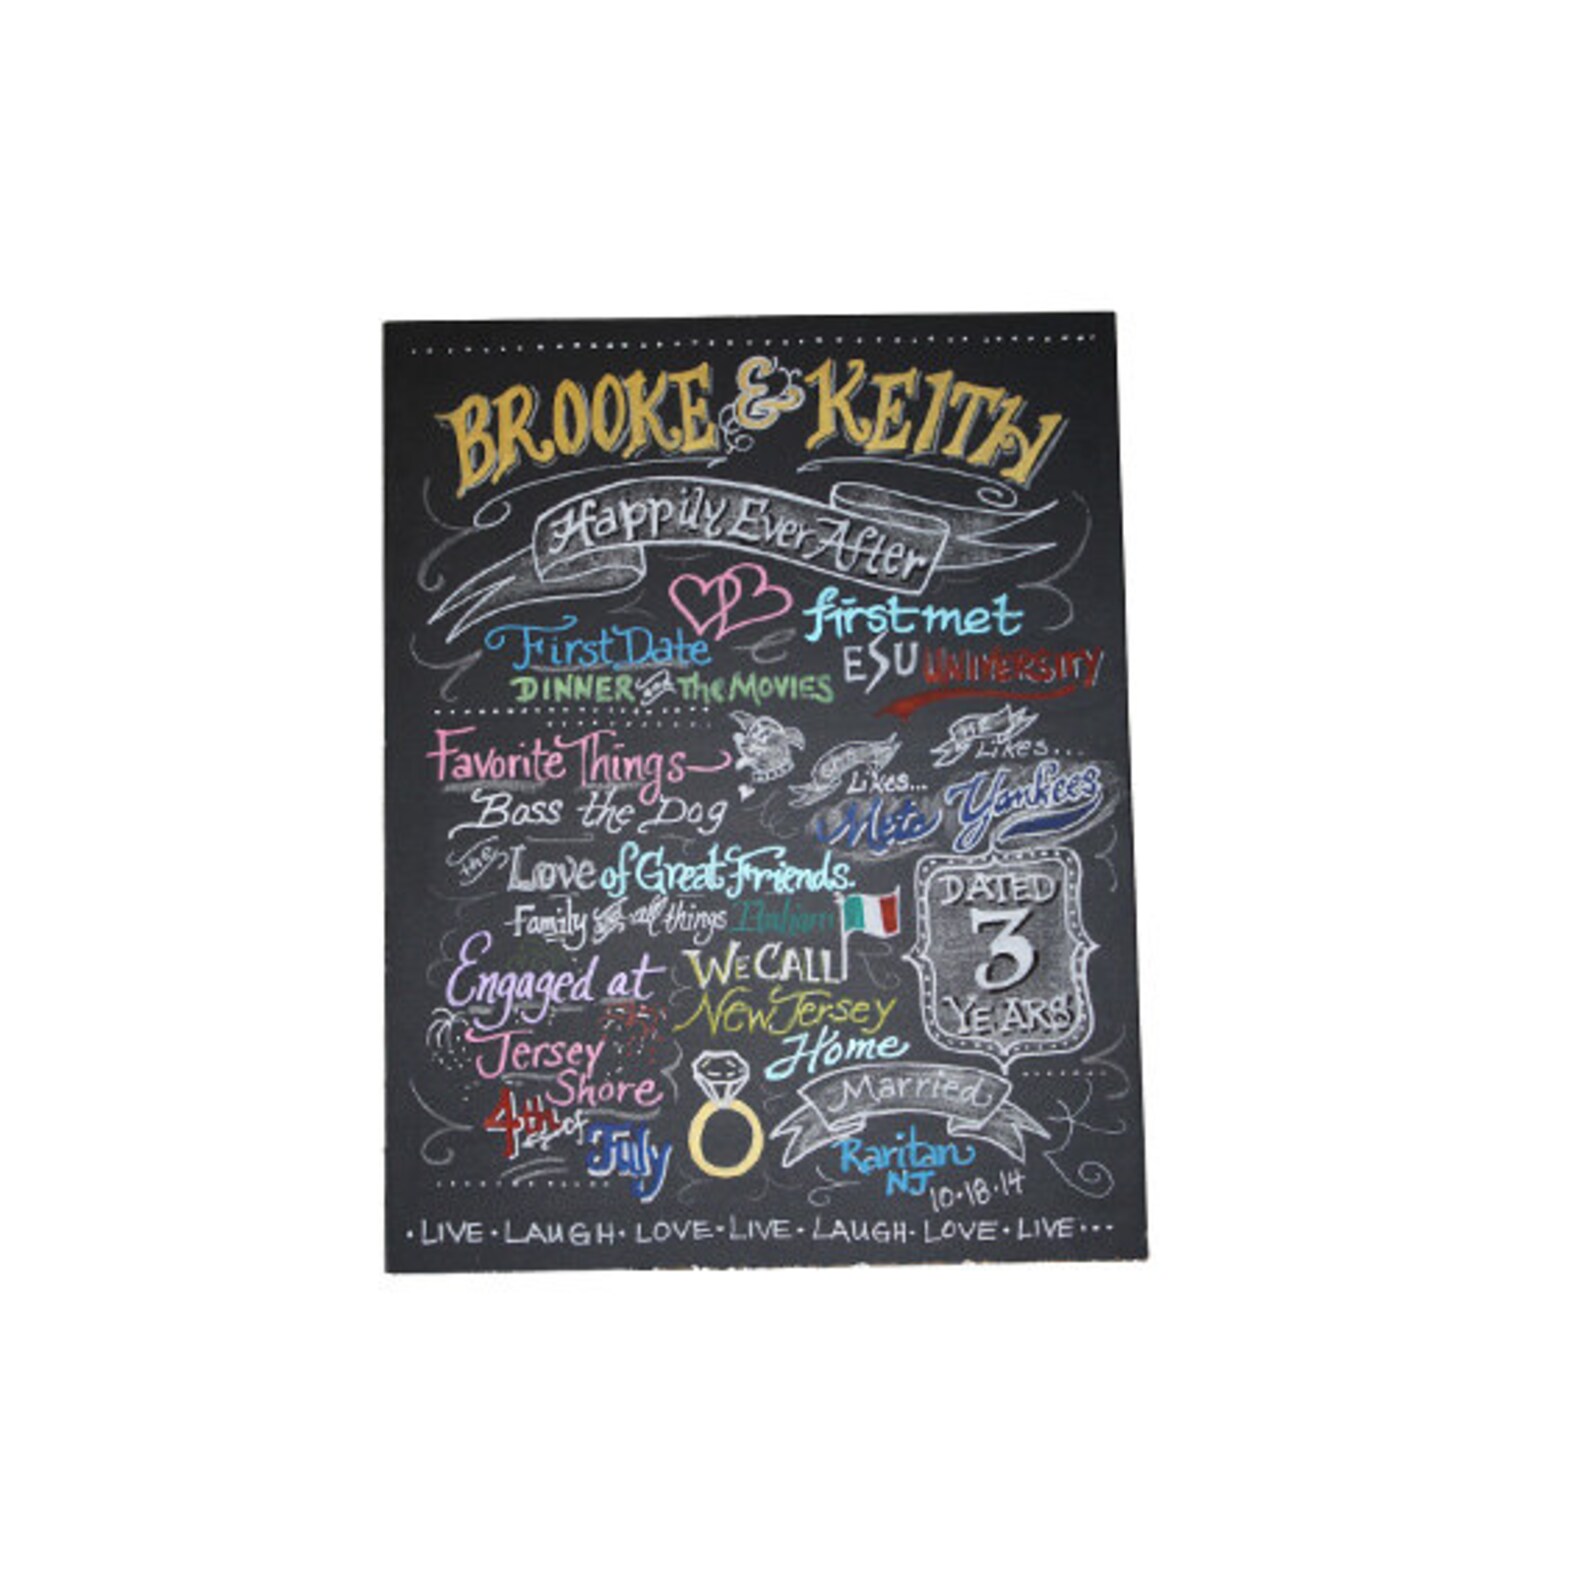 BROOKE & KEITH
Happily Ever After
First Date
DINNER and The MOVIES
first met
ESU UNIVERSITY
Favorite Things
Boss the Dog
Likes...
Mets
Likes...
Yankees
the Love of Great Friends.
Family all things Italian
DATED
3
YEARS
Engaged at
Jersey
Shore
4th of
July
WE CALL
New Jersey
Home
Married
Raritan
NJ
10.18.14
• LIVE • LAUGH • LOVE • LIVE • LAUGH • LOVE • LIVE •••